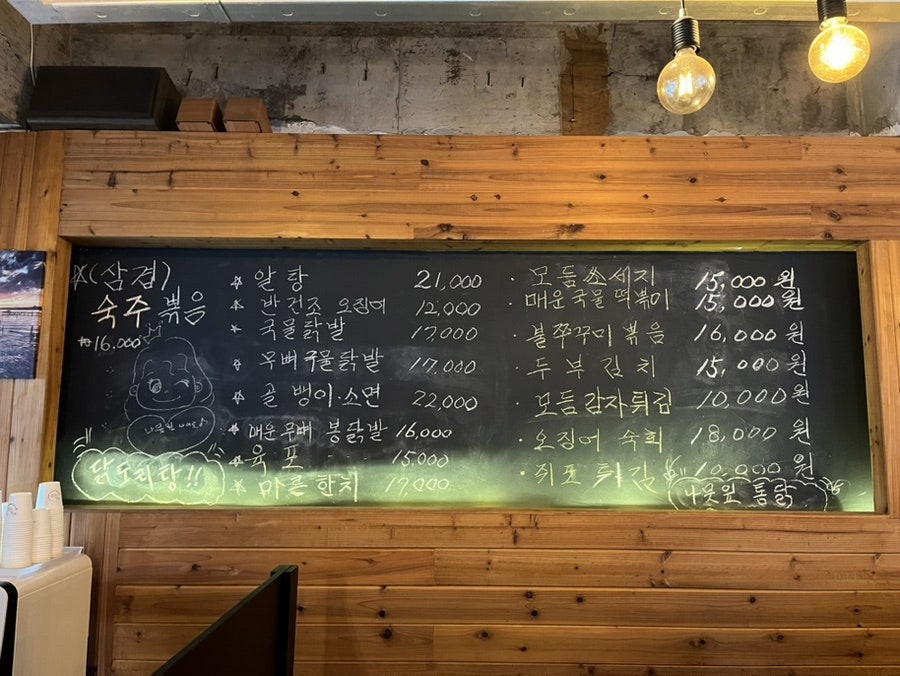 ☆(삼겹)
숙주볶음
₩16,000
닭도리탕!!
☆ 알탕 21,000
☆ 반건조 오징어 12,000
☆ 국물닭발 17,000
☆ 무뼈국물닭발 17,000
☆ 골뱅이·소면 22,000
☆ 매운무뼈 봉닭발 16,000
☆ 육포 15,000
☆ 마른한치 17,000
· 모듬쏘세지 15,000원
· 매운국물떡볶이 15,000원
· 불쭈꾸미볶음 16,000원
· 두부김치 15,000원
· 모듬감자튀김 10,000원
· 오징어 숙회 18,000원
· 쥐포튀김 10,000원
통닭